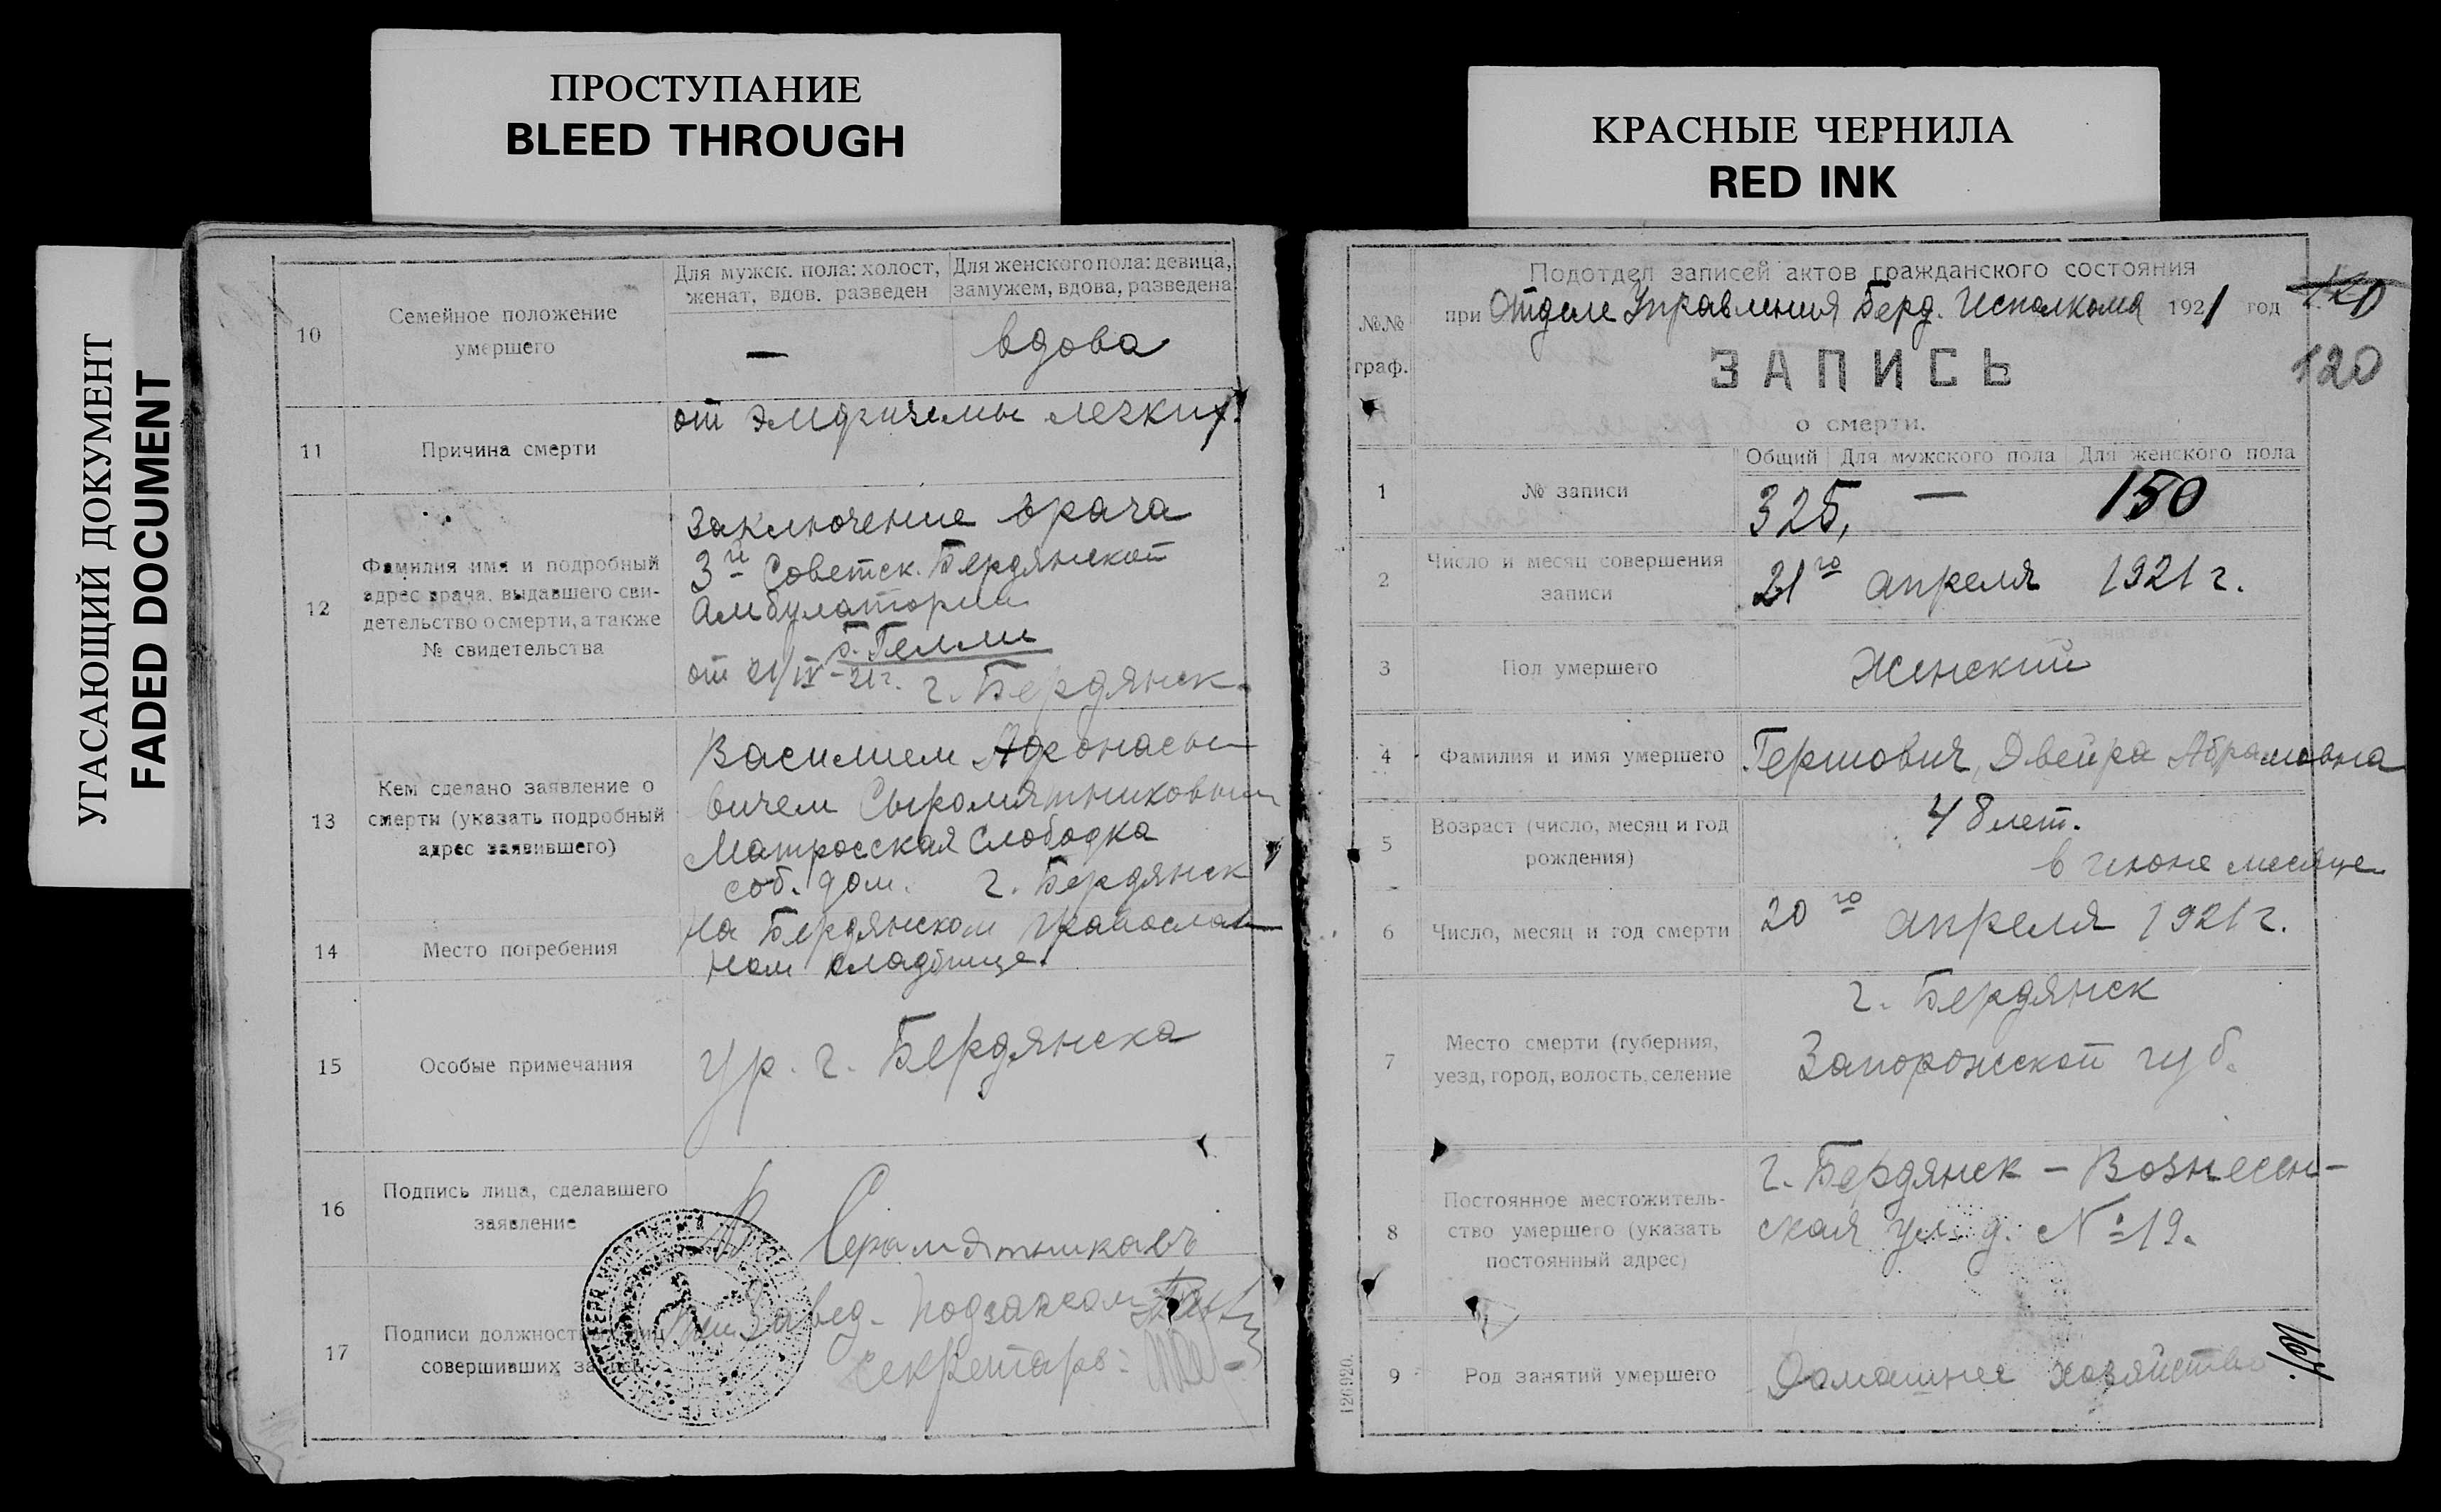 ПРОСТУПАНИЕ
BLEED THROUGH
КРАСНЫЕ ЧЕРНИЛА
RED INK
УГАСАЮЩИЙ ДОКУМЕНТ
FADED DOCUMENT
10
Семейное положение
умершего
Для мужск. пола: холост,
женат, вдов. разведен
Для женского пола: девица,
замужем, вдова, разведена
—
вдова
11
Причина смерти
от эмфиземы легких.
12
Фамилия имя и подробный
адрес врача, выдавшего сви-
детельство о смерти, а также
№ свидетельства
Заключение врача
3й Советск. Бердянской
Амбулатории
от 21/IV-21г. г. Бердянск.
13
Кем сделано заявление о
смерти (указать подробный
адрес заявившего)
Василием Афонасье
вичем Сыромятниковым
Матросская Слободка
соб. дом. г. Бердянск
14
Место погребения
На Бердянском православ
ном кладбище.
15
Особые примечания
Ур. г. Бердянска
16
Подпись лица, сделавшего
заявление
В Серамятникавъ
17
Подписи должностных лиц
совершивших запись
Завед. Подзагсом
Секретарь:
№№
граф.
Подотдел записей актов гражданского состояния
при Отделе Управления Берд. Исполкома 1921 год
120
120
ЗАПИСЬ
о смерти.
Общий Для мужского пола Для женского пола
1
№ записи
325, — 150
2
Число и месяц совершения
записи
21го апреля 1921 г.
3
Пол умершего
Женский
4
Фамилия и имя умершего
Гершович, Двейра Абрамовна
5
Возраст (число, месяц и год
рождения)
48 лет.
в июне месяце
6
Число, месяц и год смерти
20го апреля 1921 г.
7
Место смерти (губерния,
уезд, город, волость, селение
г. Бердянск
Запорожской губ.
8
Постоянное местожитель-
ство умершего (указать
постоянный адрес)
г. Бердянск – Вознесен-
ская ул. д. № 19.
9
Род занятий умершего
Домашнее хозяйство
126920.